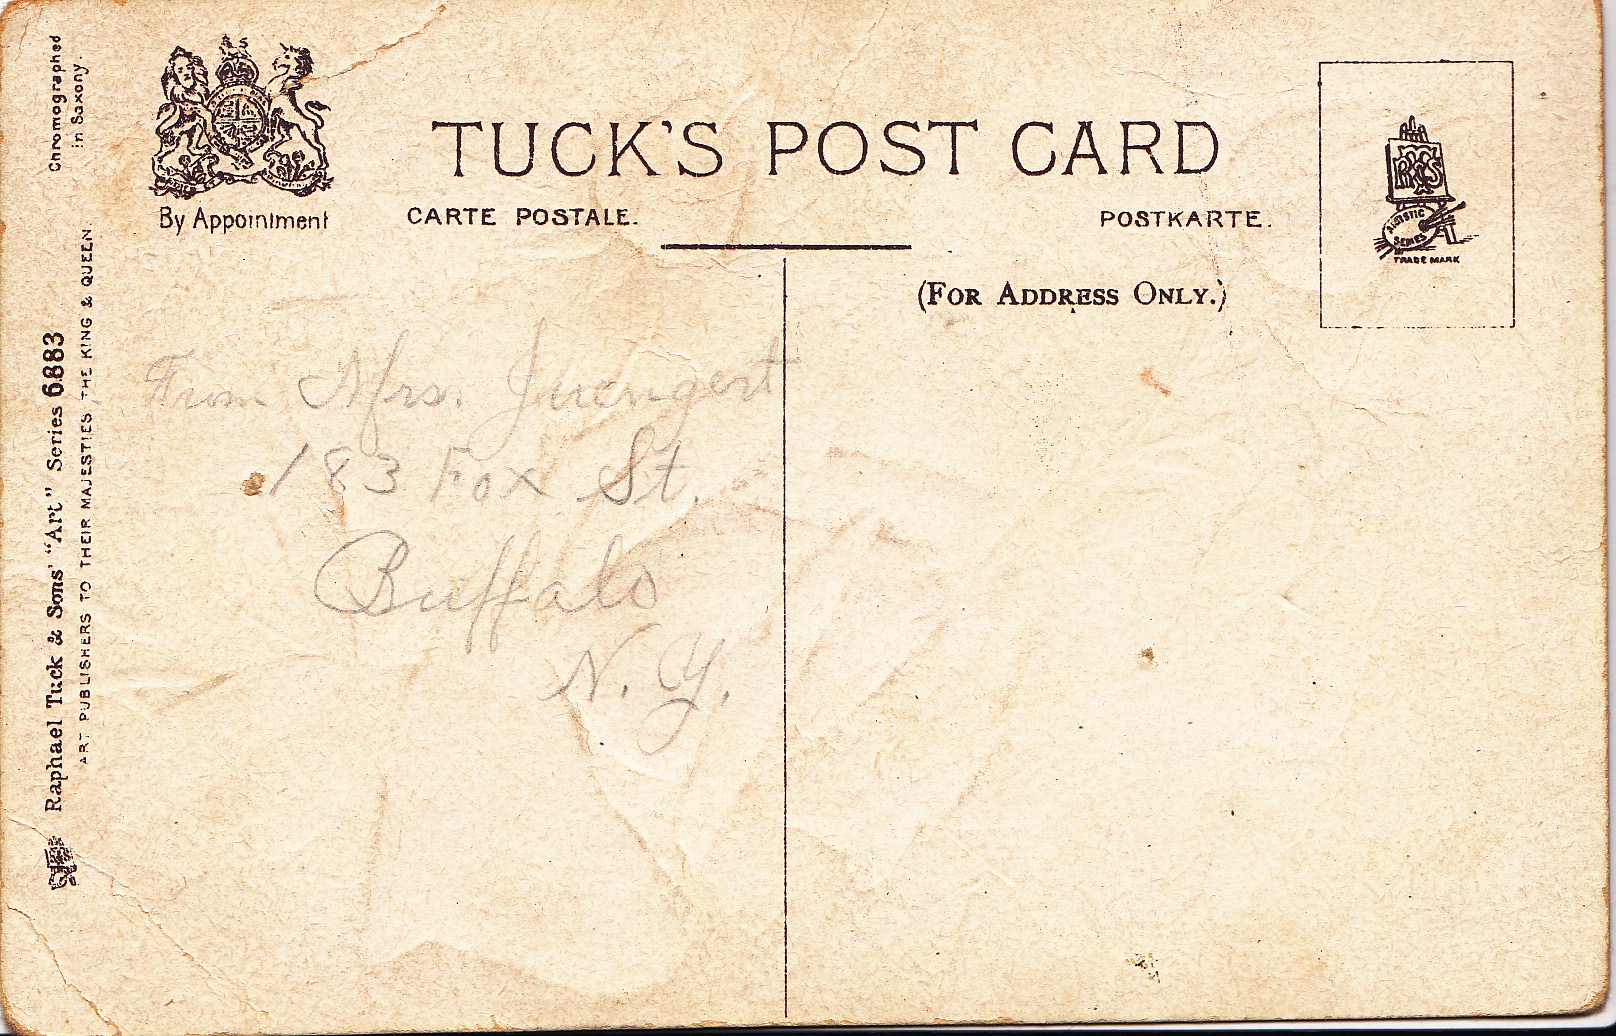 Chromographed
in Saxony.
By Appointment
TUCK'S POST CARD
CARTE POSTALE.
POSTKARTE.
(FOR ADDRESS ONLY.)
ARTISTIC
SERIES
TRADE MARK
Raphael Tuck & Sons' "Art" Series 6883
ART PUBLISHERS TO THEIR MAJESTIES THE KING & QUEEN
From Mrs. Juengert
183 Fox St.
Buffalo
N. Y.